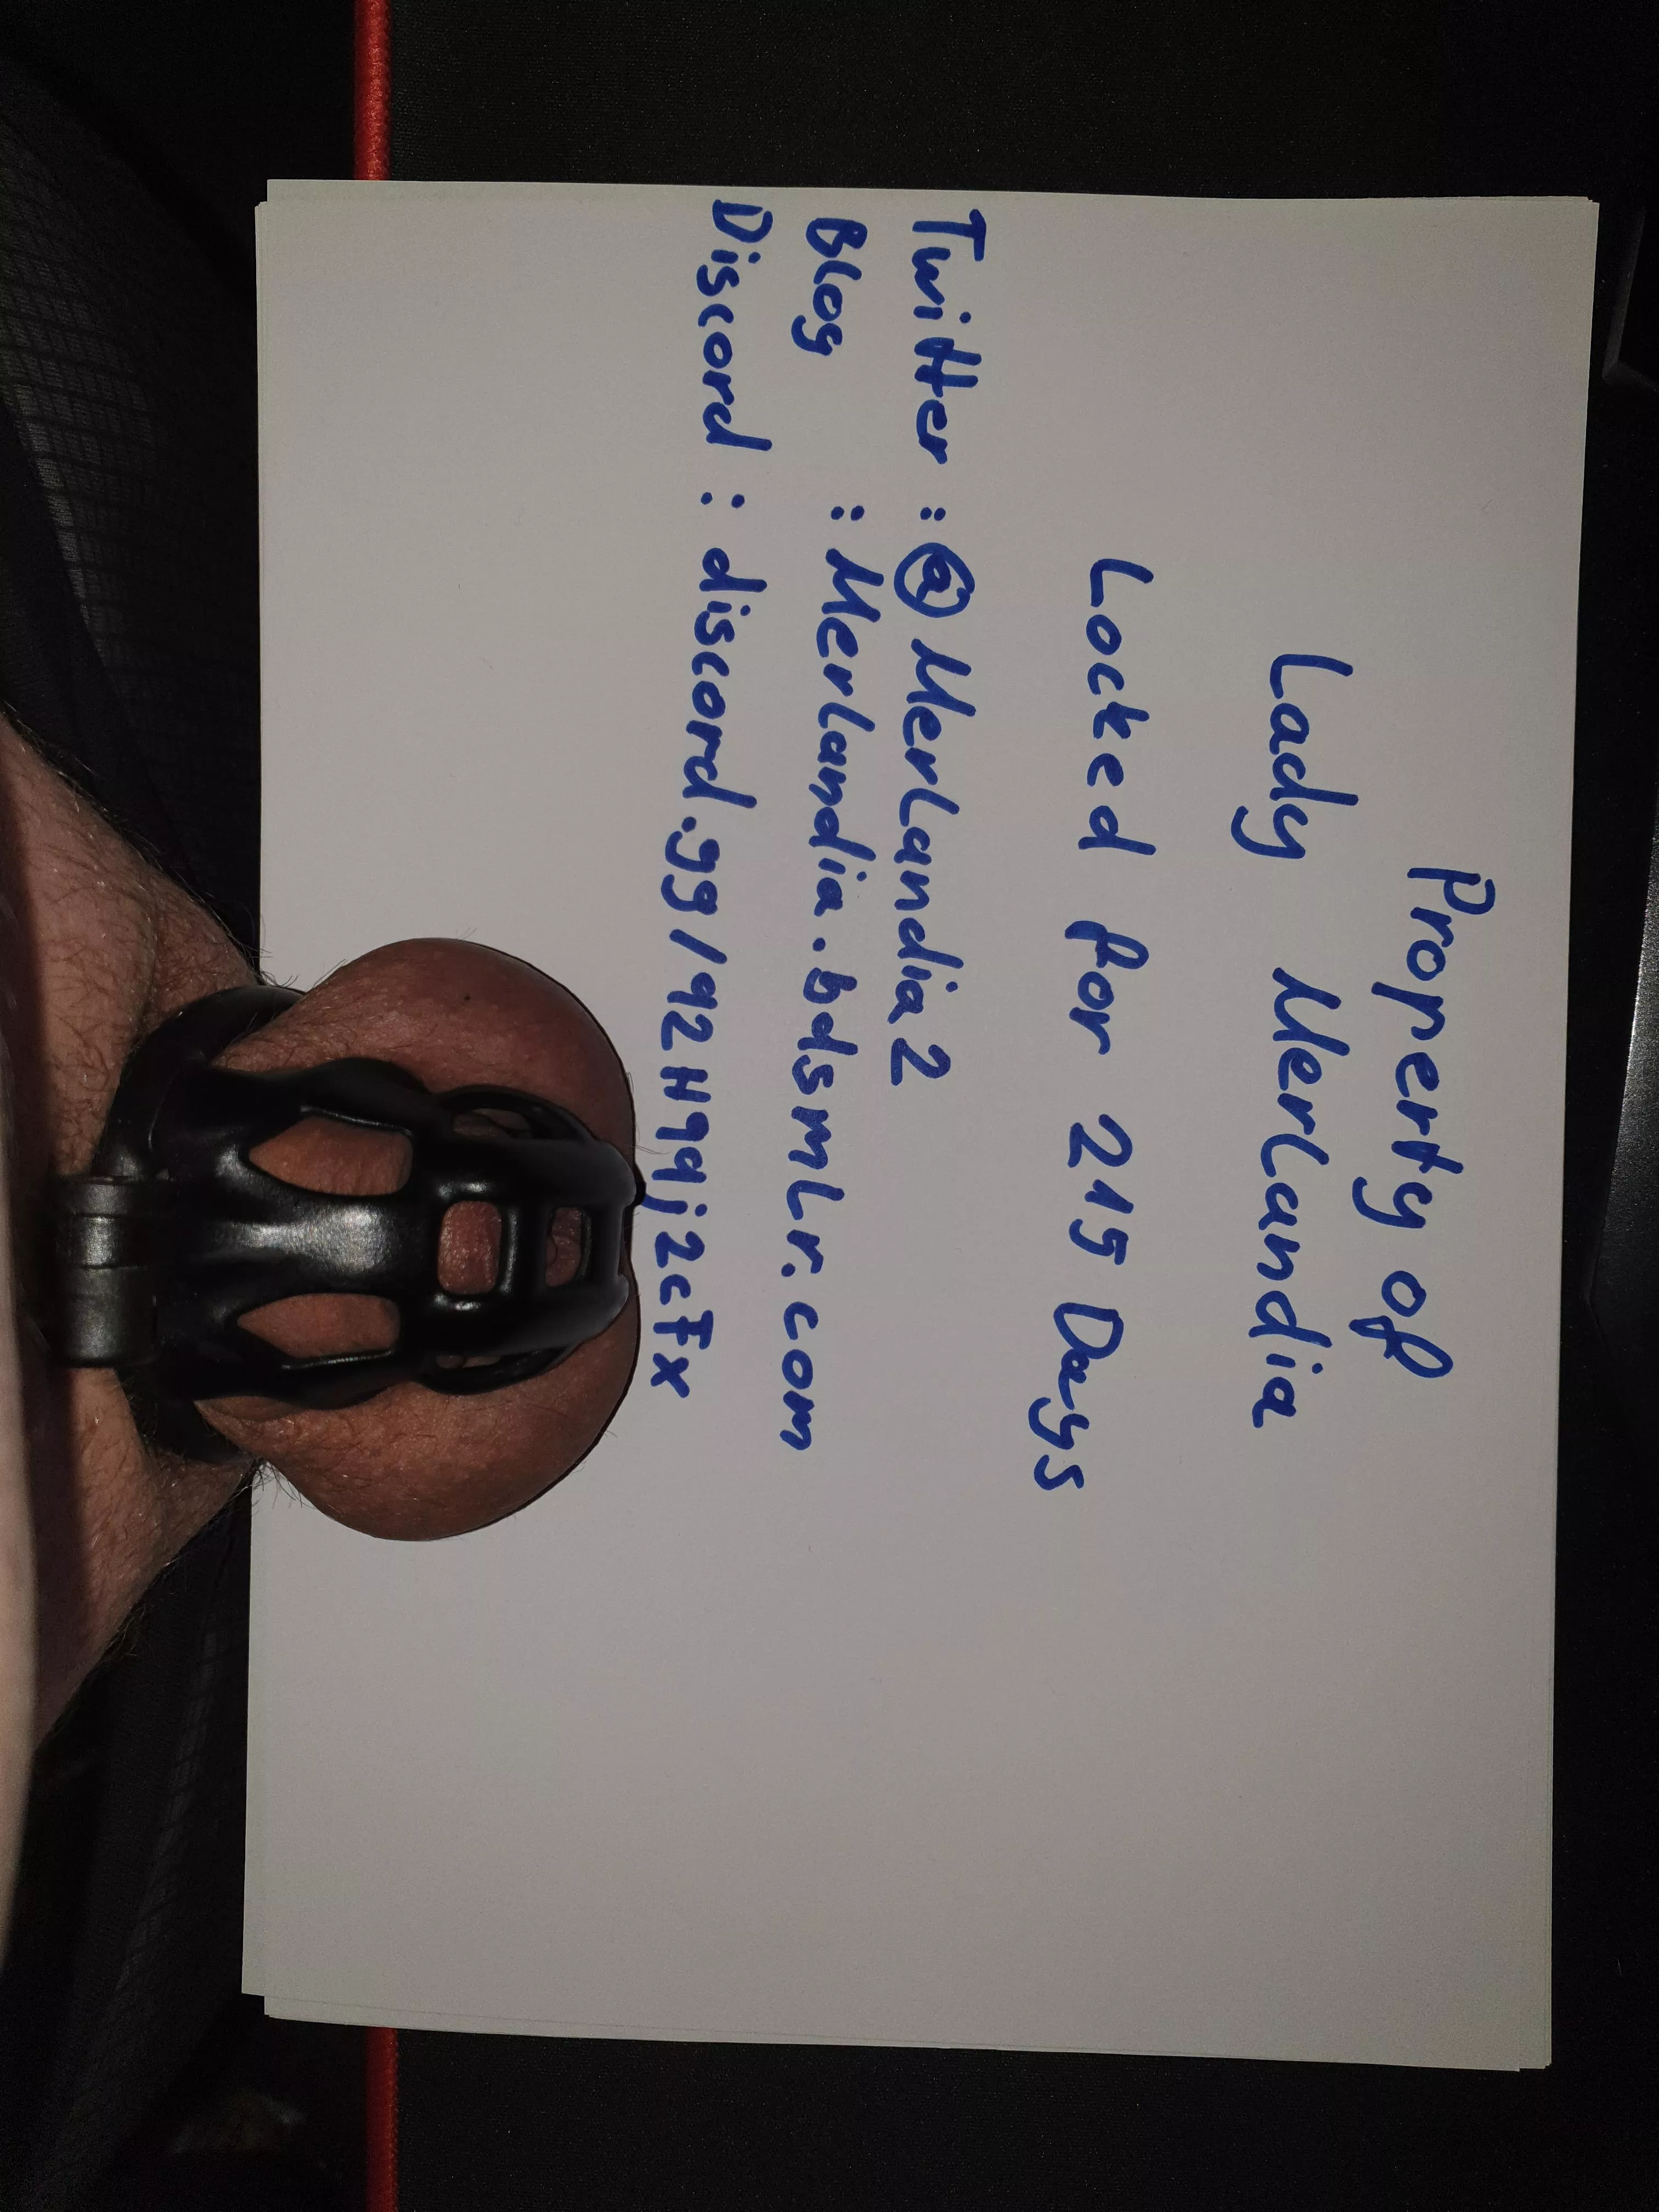 Property of
Lady Merlandia
Locked for 215 Days
Twitter : @Merlandia2
Blog : Merlandia.bdsmlr.com
Discord : discord.gg/92H99j2cFx